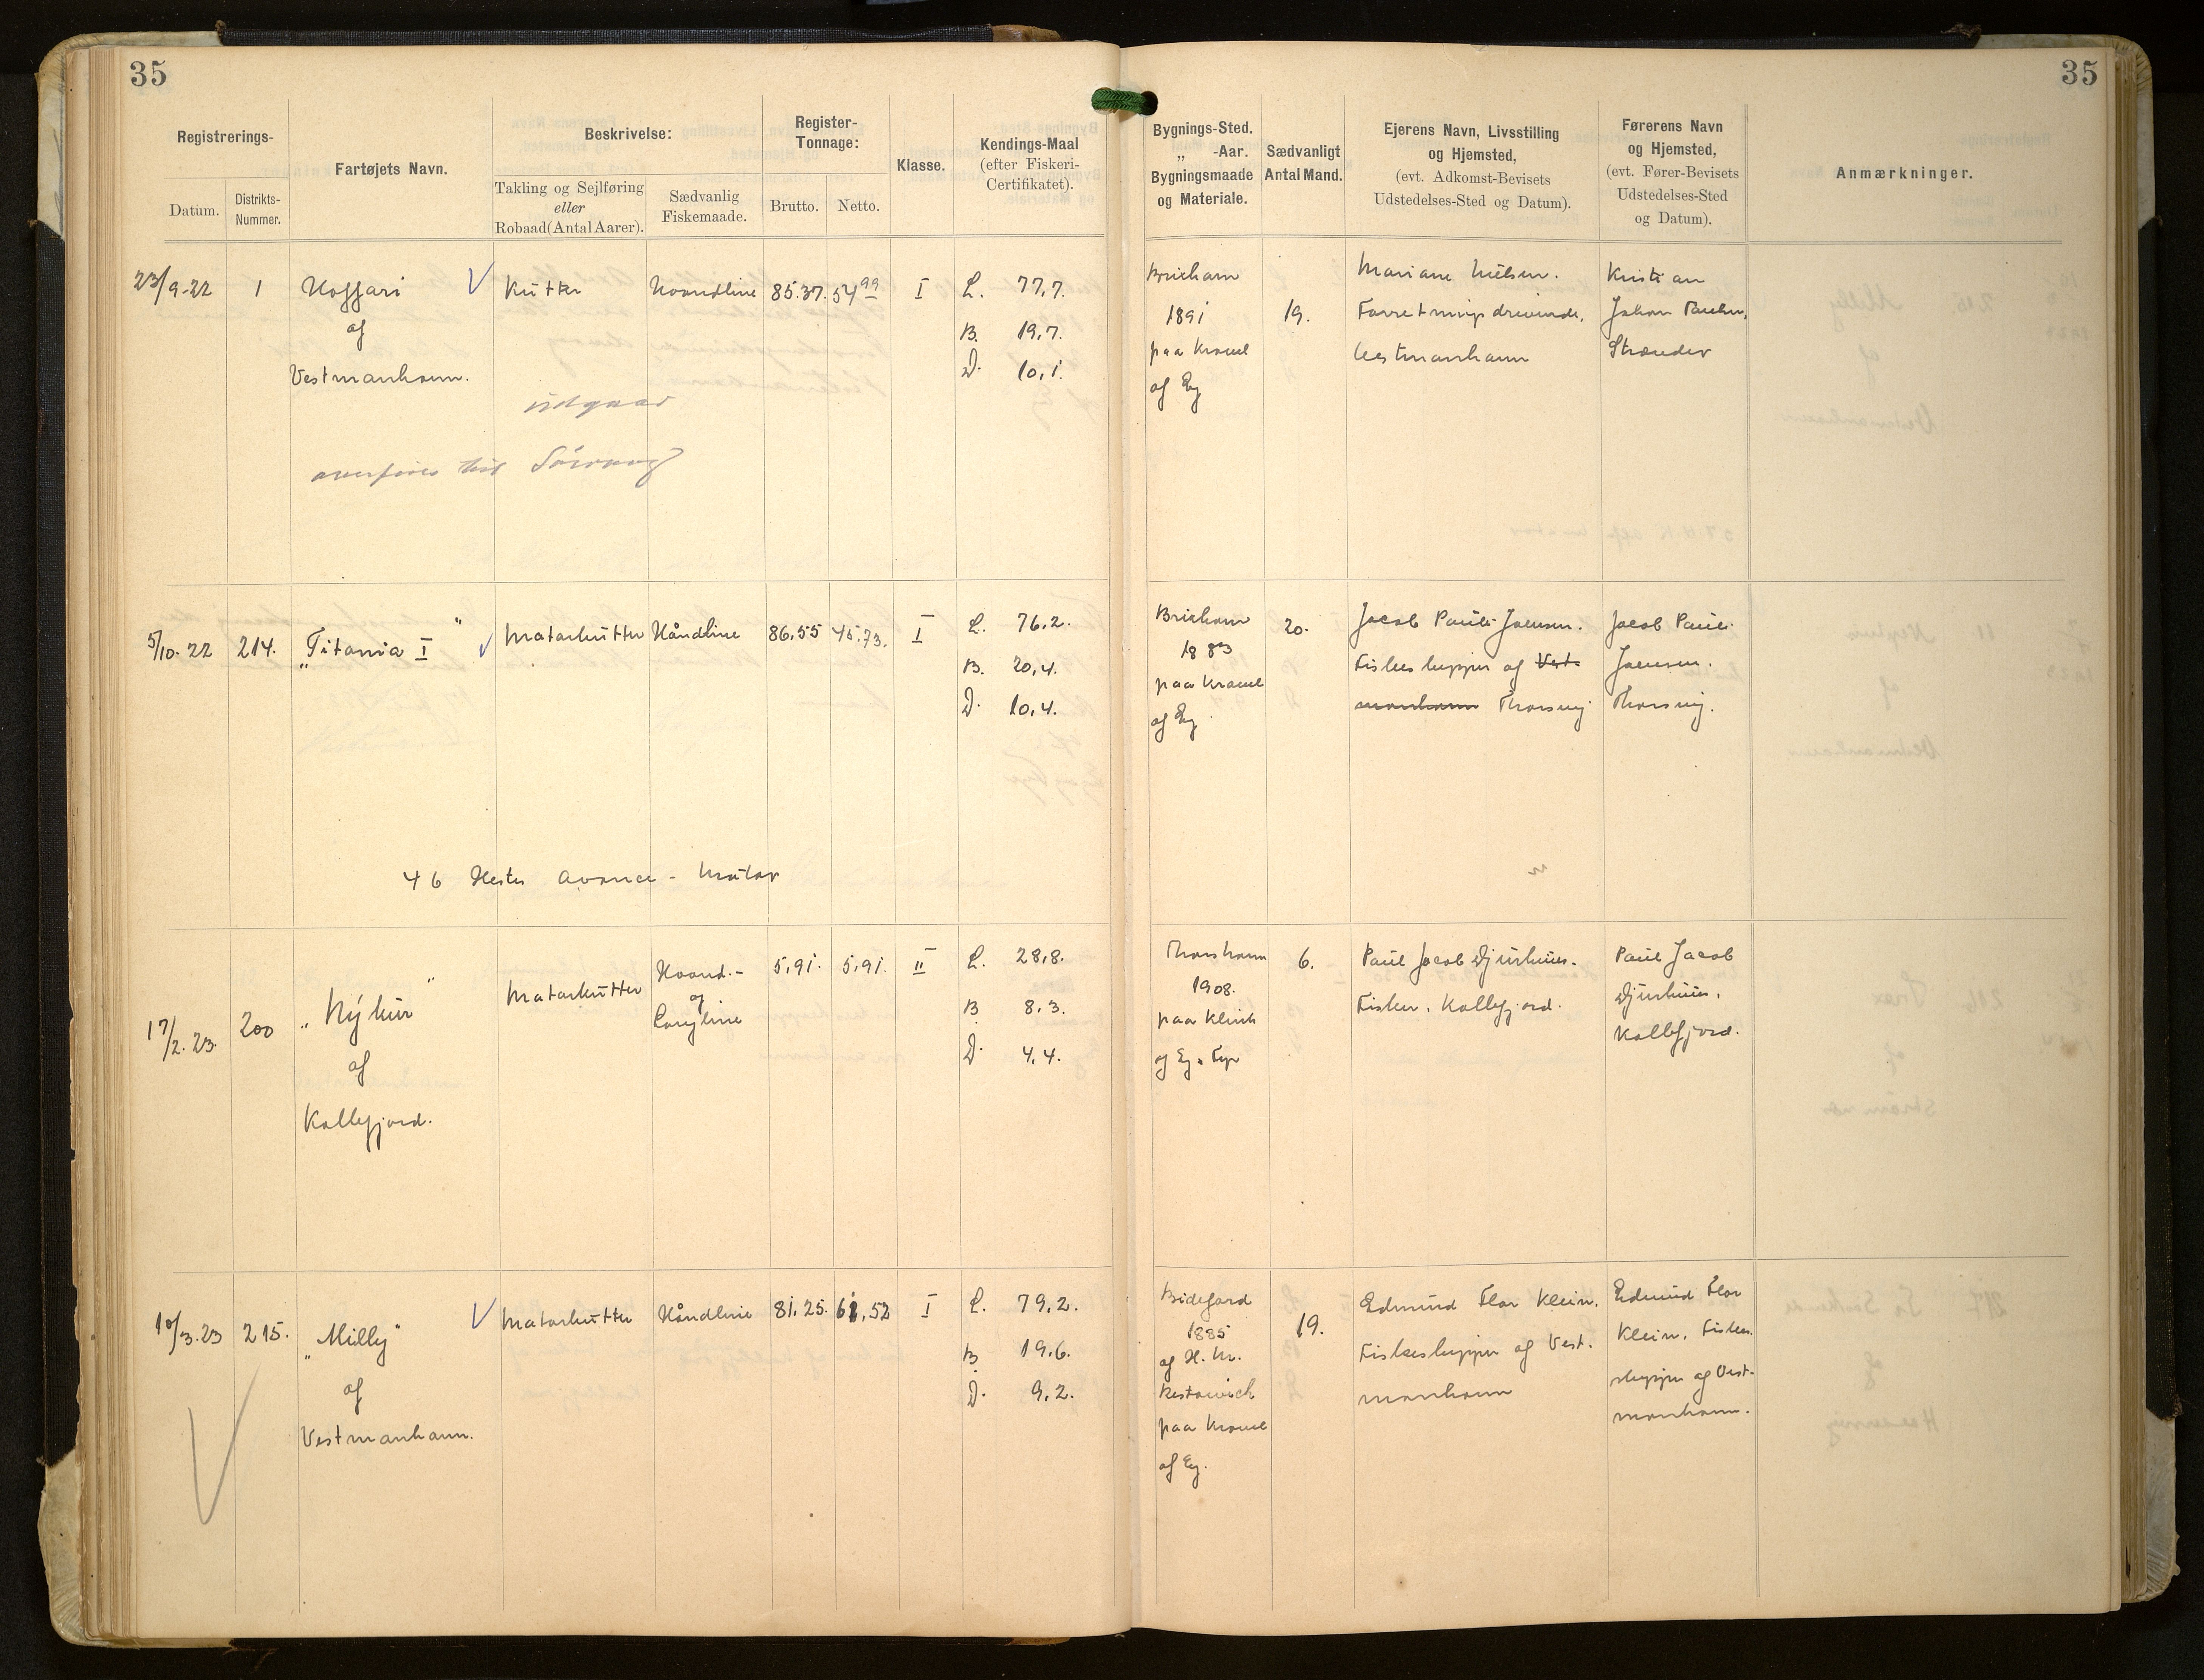 35
35
Registrerings-
Datum.
Distrikts-
Nummer.
Fartøjets Navn.
Beskrivelse:
Takling og Sejlføring
eller
Robaad (Antal Aarer).
Sædvanlig
Fiskemaade.
Register-
Tonnage:
Brutto.
Netto.
Klasse.
Kendings-Maal
(efter Fiskeri-
Certifikatet).
Bygnings-Sted.
„ -Aar.
Bygningsmaade
og Materiale.
Sædvanligt
Antal Mand.
Ejerens Navn, Livsstilling
og Hjemsted,
(evt. Adkomst-Bevisets
Udstedelses-Sted og Datum).
Førerens Navn
og Hjemsted,
(evt. Fører-Bevisets
Udstedelses-Sted
og Datum).
Anmærkninger.
23/9-22
1
af
Vestmanhavn.
Kutter
Haandline
85.37.
54 99
I
L. 77,7.
B. 19,7.
D. 10,1.
Brixham
1891
paa Kravel
af Eg
19.
Mariane Nielsen.
Forretningsdrivende,
Vestmanhavn
Kristian
Johan
Strænder
udgaar
overføres til Sörvaag
5/10-22
214.
„Titania I"
Motorkutter
Håndline
86,55
45,73.
I
L. 76,2.
B. 20,4.
D. 10,4.
Brixham
1883
paa Kravel
af Eg
20.
Jacob Pauli Joensen.
Fiskeskipper af Vest-
manhavn Thorsvig
Jacob Pauli
Joensen.
Thorsvig.
46 Hestes Avance - Motor
17/2.23.
200
„Nýkur"
af
Kollefjord.
Motorkutter
Haand.-
og
Langline
5,91.
5,91.
II
L. 28,8.
B 8,3.
D. 4,4.
Thorshavn
1908.
paa Klink
af Eg & Fyr
6.
Paul Jacob Djurhuus.
Fisker. Kollefjord.
Paul Jacob
Djurhuus.
Kollefjord.
10/3.23
215.
„Milly"
af
Vestmanhavn.
Motorkutter
Håndline
81,25.
61,52
I
L. 79,2.
B 19,6.
D. 9,2.
Bideford
1885
af H. M.
Restarick
paa Kravel
af Eg.
19.
Edmund Flor Klein.
Fiskeskipper af Vest.
manhavn
Edmund Flor
Klein. Fiske-
skipper af Vest-
manhavn.